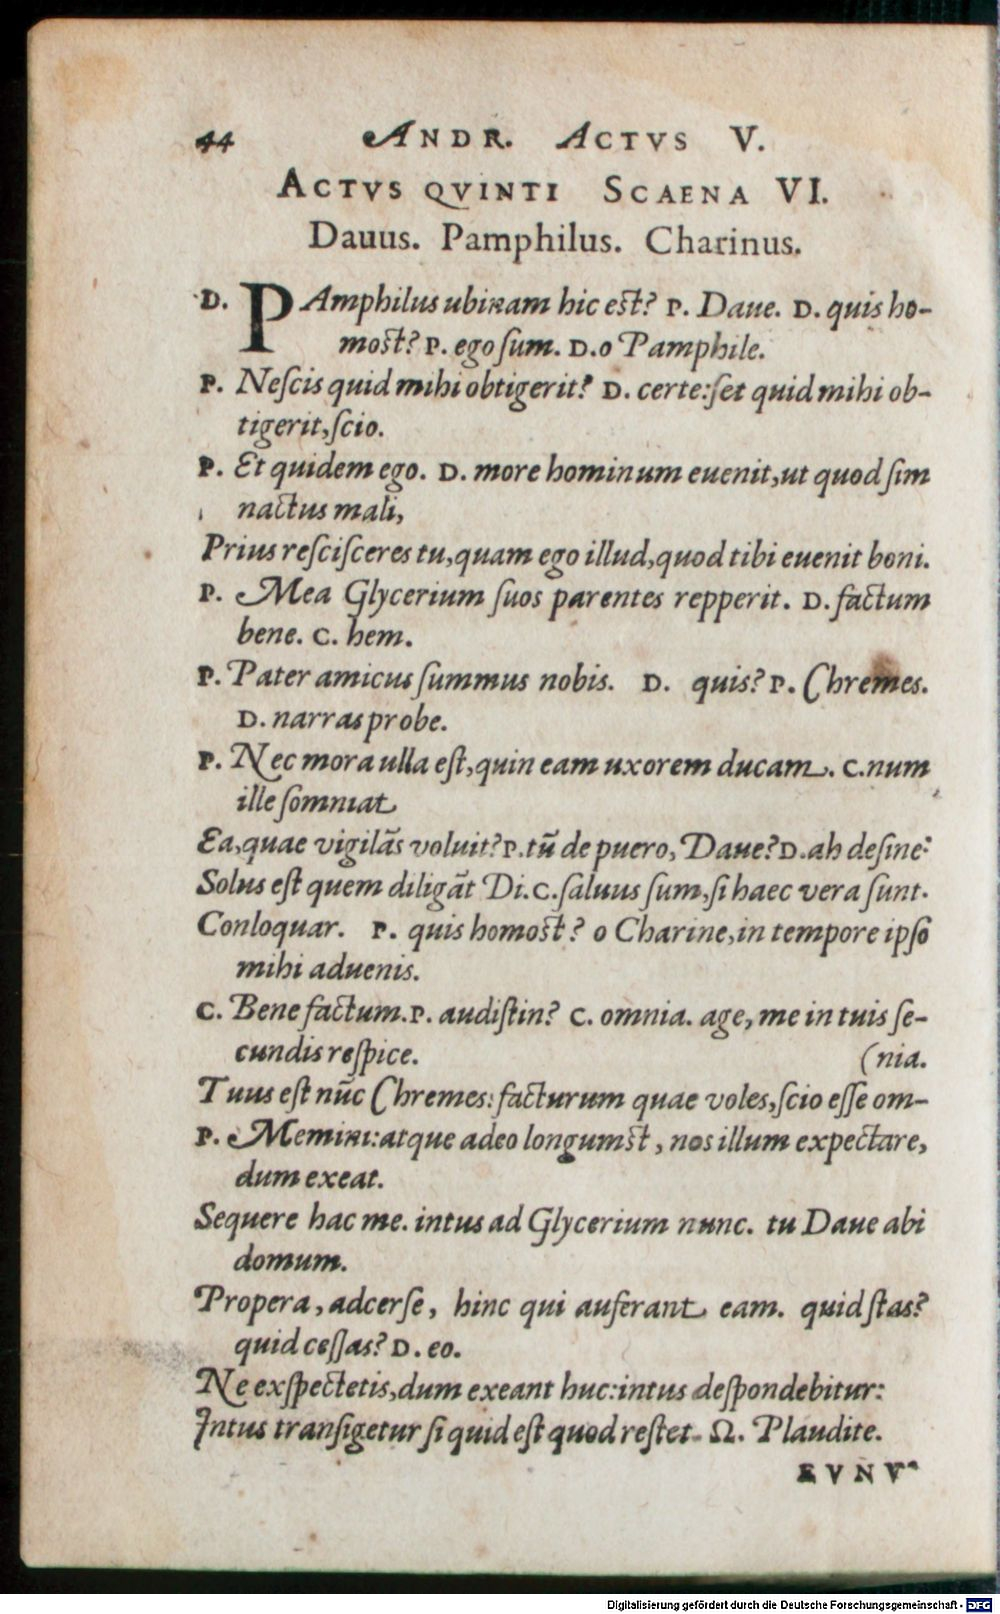 44 ANDR. ACTVS V.
ACTVS QVINTI SCAENA VI.
Dauus. Pamphilus. Charinus.
D. PAmphilus ubinam hic est? P. Daue. D. quis ho-
most? P. ego sum. D. o Pamphile.
P. Nescis quid mihi obtigerit? D. certe: set quid mihi ob-
tigerit, scio.
P. Et quidem ego. D. more hominum euenit, ut quod sim
nactus mali,
Prius rescisceres tu, quam ego illud, quod tibi euenit boni.
P. Mea Glycerium suos parentes repperit. D. factum
bene. C. hem.
P. Pater amicus summus nobis. D. quis? P. Chremes.
D. narras probe.
P. Nec mora ulla est, quin eam uxorem ducam. C. num
ille somniat
Ea, quae vigilãs voluit? P. tũ de puero, Daue? D. ah desine:
Solus est quem diligãt Di. C. saluus sum, si haec vera sunt.
Conloquar. P. quis homost? o Charine, in tempore ipso
mihi aduenis.
C. Bene factum. P. audistin? C. omnia. age, me in tuis se-
cundis respice. (nia.
Tuus est nũc Chremes: facturum quae voles, scio esse om-
P. Memini: atque adeo longumst, nos illum expectare,
dum exeat.
Sequere hac me. intus ad Glycerium nunc. tu Daue abi
domum.
Propera, adcerse, hinc qui auferant eam. quid stas?
quid cessas? D. eo.
Ne exspectetis, dum exeant huc: intus despondebitur:
Intus transigetur si quid est quod restet. Ω. Plaudite.
EVNV-
Digitalisierung gefördert durch die Deutsche Forschungsgemeinschaft - DFG